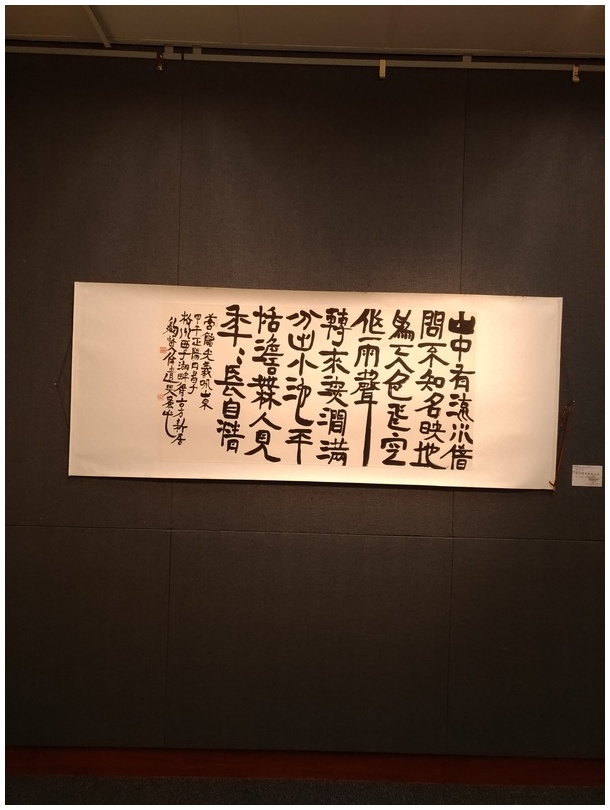 山中有流水借
問不知名映地
為天色飛空
作雨聲
轉來深澗滿
分出小池平
恬澹無人見
年〻長自清
唐儲光羲詠山泉
甲午正陽月